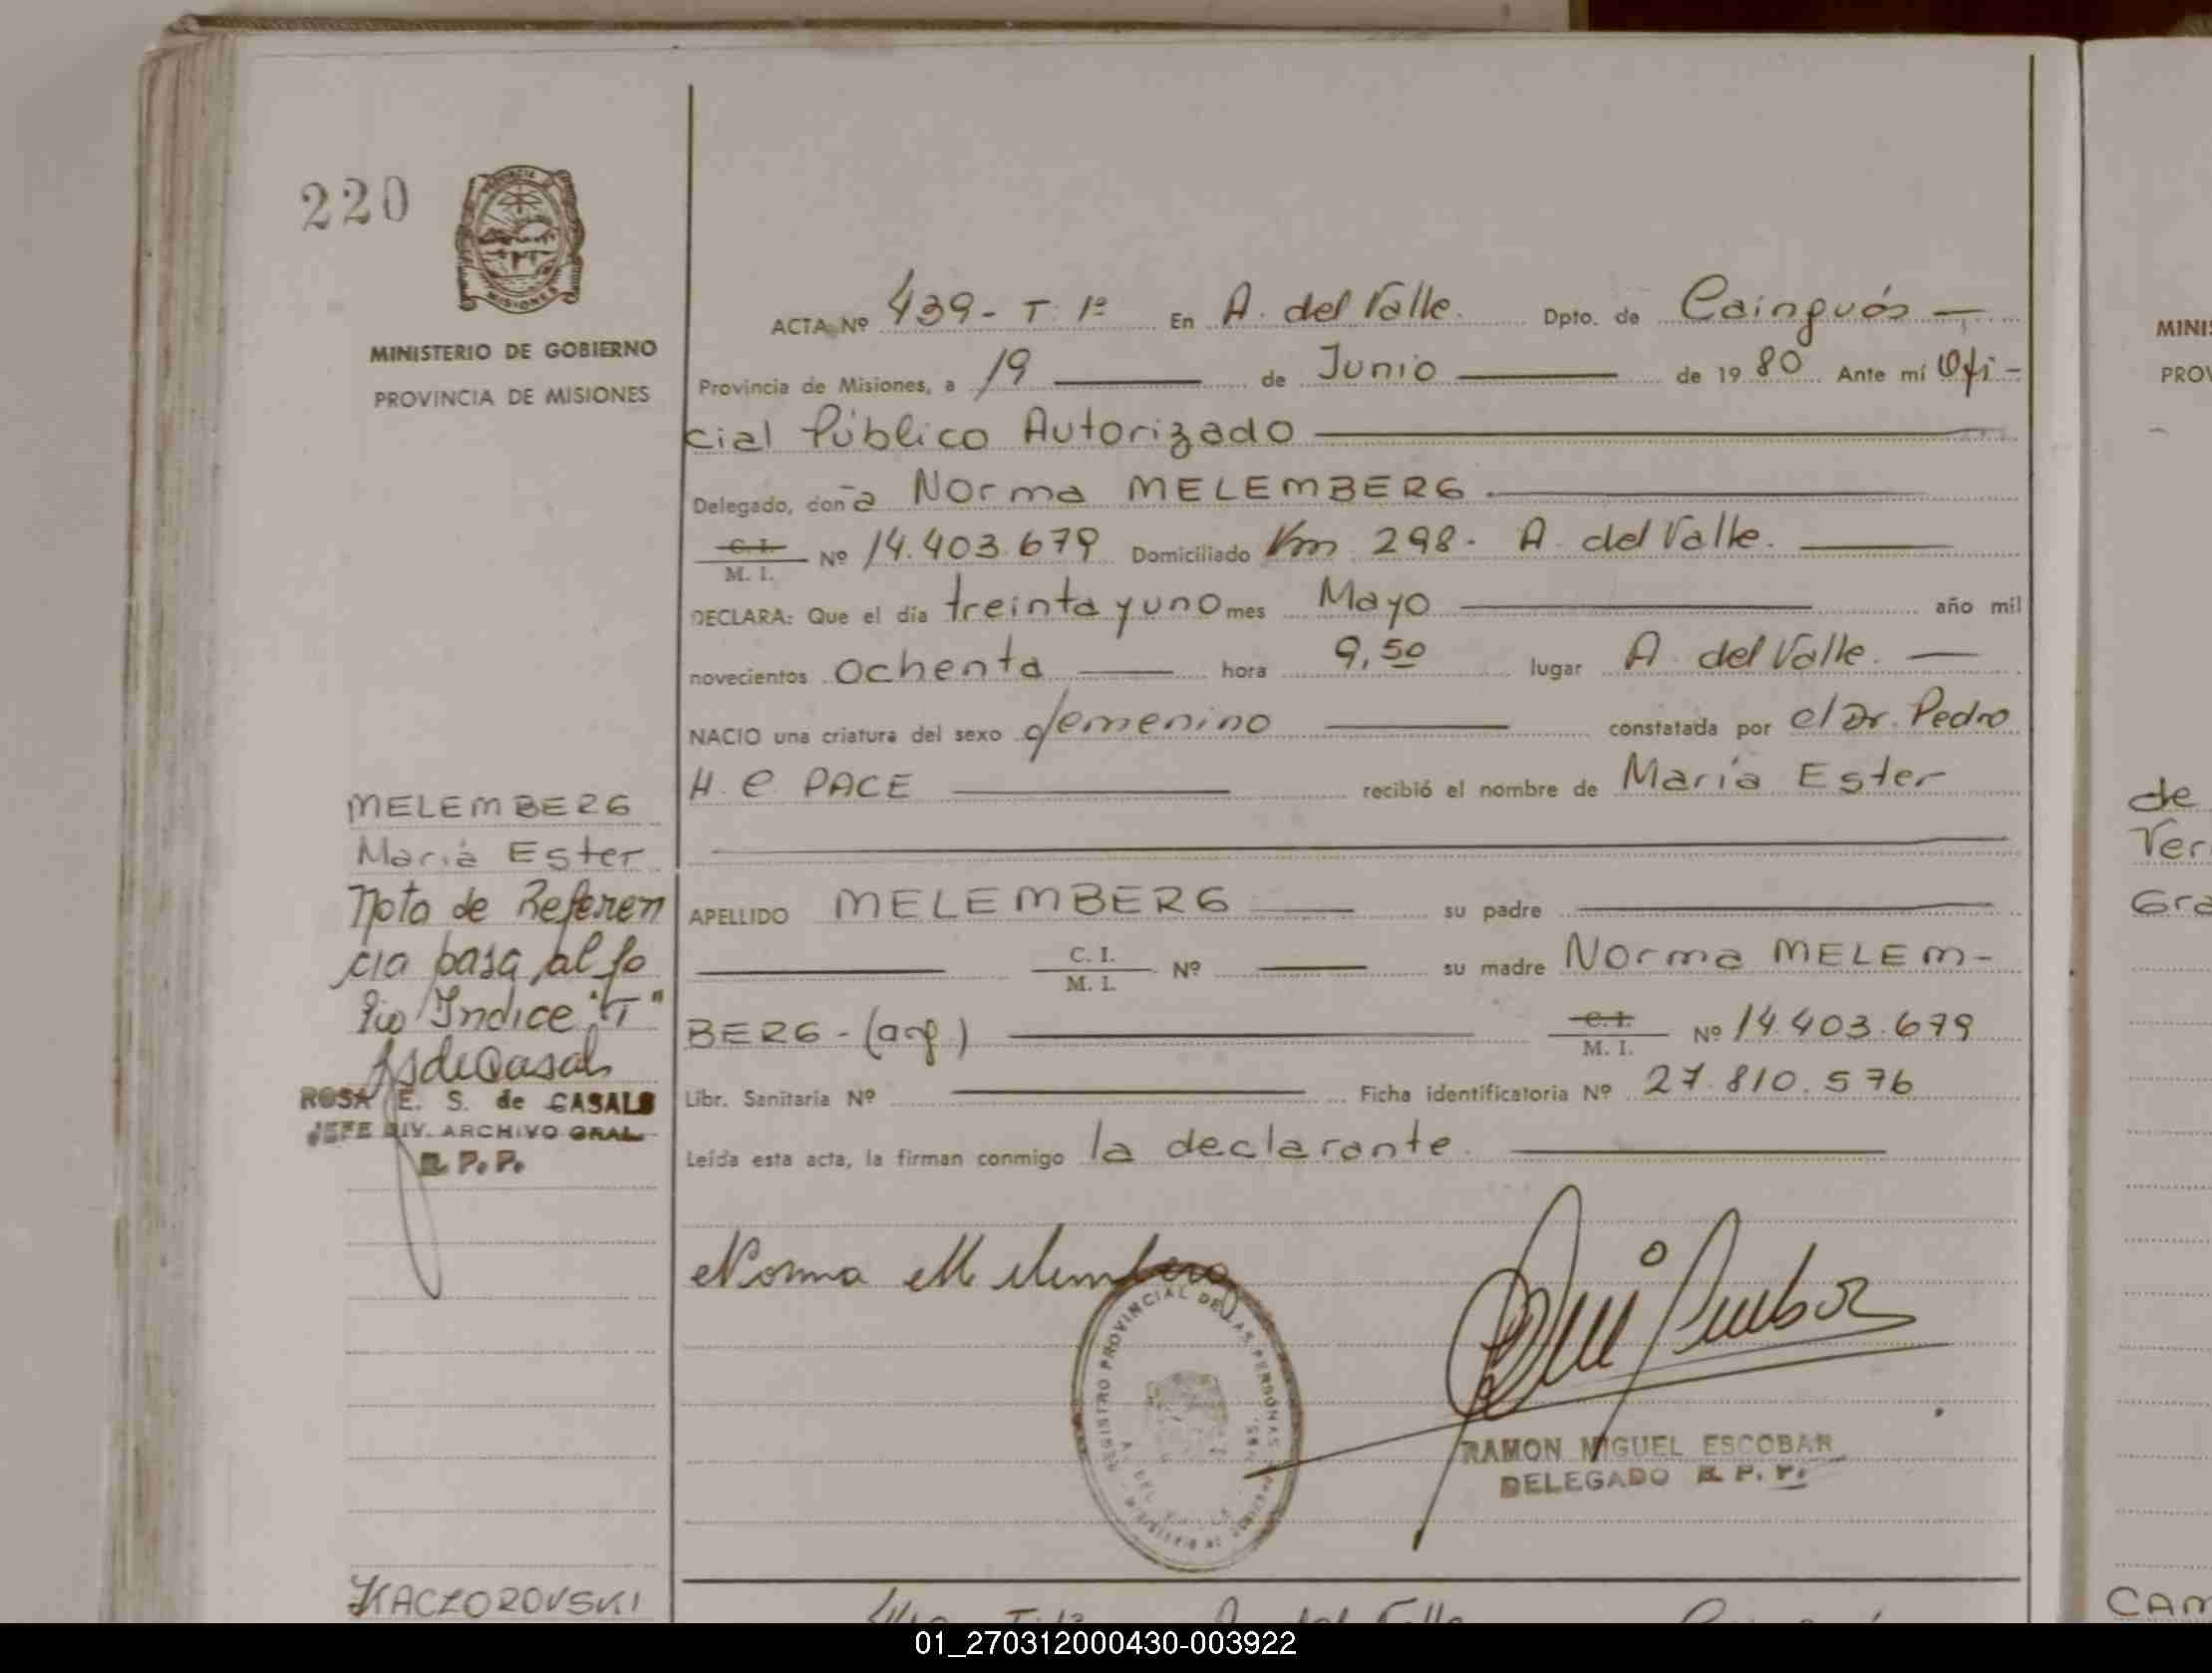 220
PROVINCIA DE
MISIONES
MINISTERIO DE GOBIERNO
PROVINCIA DE MISIONES
ACTA Nº 439 - T. 1º En A. del Valle. Dpto. de Cainguás —
Provincia de Misiones, a 19 — de Junio — de 19 80 Ante mí Ofi-
cial Público Autorizado —
Delegado, doña Norma MELEMBERG —
C. I.
M. I. Nº 14.403.679 Domiciliado Km 298. A. del Valle. —
DECLARA: Que el día treinta y uno mes Mayo — año mil
novecientos ochenta — hora 9,50 lugar A. del Valle. —
NACIO una criatura del sexo femenino — constatada por el Dr. Pedro
H. C. PACE — recibió el nombre de María Ester
APELLIDO MELEMBERG — su padre —
— C. I.
M. I. Nº — su madre Norma MELEM-
BERG - (arg.) — C. I.
M. I. Nº 14.403.679
Libr. Sanitaria Nº — Ficha identificatoria Nº 27.810.576
Leída esta acta, la firman conmigo la declarante. —
Norma Melemberg
REGISTRO PROVINCIAL DE LAS PERSONAS
A. DEL VALLE
RAMON MIGUEL ESCOBAR
DELEGADO R. P. P.
MELEMBERG
María Ester
Nota de Referen
cia pasa al fo
lio Indice "T"
ROSA E. S. de CASALS
JEFE DIV. ARCHIVO GRAL.
R. P. P.
KACZOROVSKI
440 T. 1º A. del Valle
MINIS
PROV
de
Ver
Gra
CAM
01_270312000430-003922